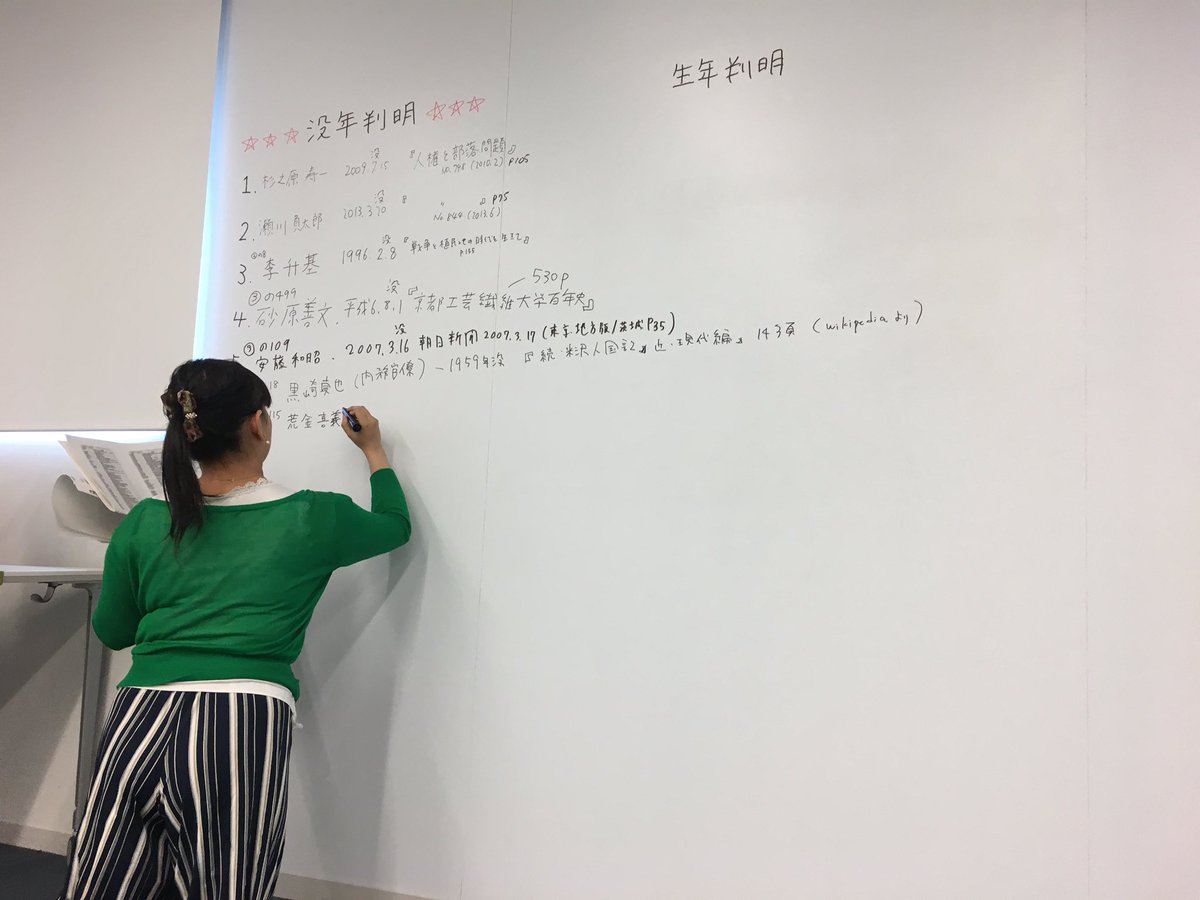 生年判明
☆☆☆ 没年判明 ☆☆☆
没
1. 杉之原寿一 2009.7.15 『人権と部落問題』
No.798 (2010.2) P105
没
2. 瀬川負太郎 2013.3.20 『 〃 』 P75
No.844 (2013.6)
没
3. 李升基 1996.2.8 『戦争と植民地の時代を生きて』
P155
530p
③の499 没
4. 砂原善文. 平成6.8.1 『京都工芸繊維大学百年史』
⑨の109 没
5. 安藤和昭. 2007.3.16 朝日新聞 2007.3.17 (東京地方版/茨城P35)
18 黒崎貞也 (内務官僚) - 1959年没 『続・米沢人国記』 近・現代編』 143頁 (wikipediaより)
115 荒金喜義